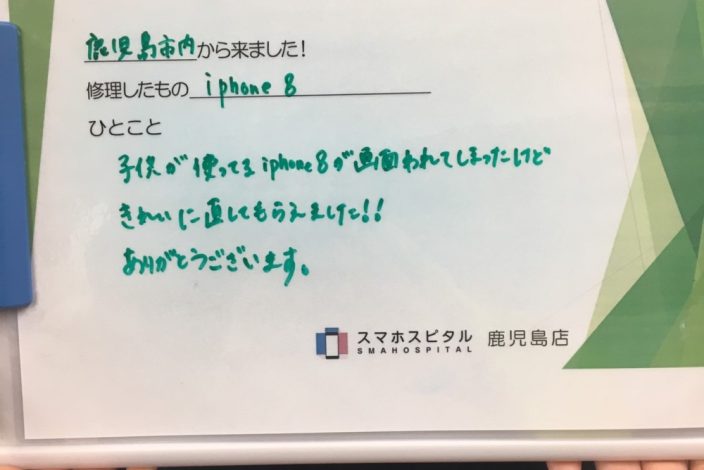 鹿児島市内から来ました!
修理したもの iphone 8
ひとこと
子供が使ってる iphone8が画面われてしまったけど
きれいに直してもらえました!!
ありがとうございます。
スマホスピタル 鹿児島店
SMAHOSPITAL